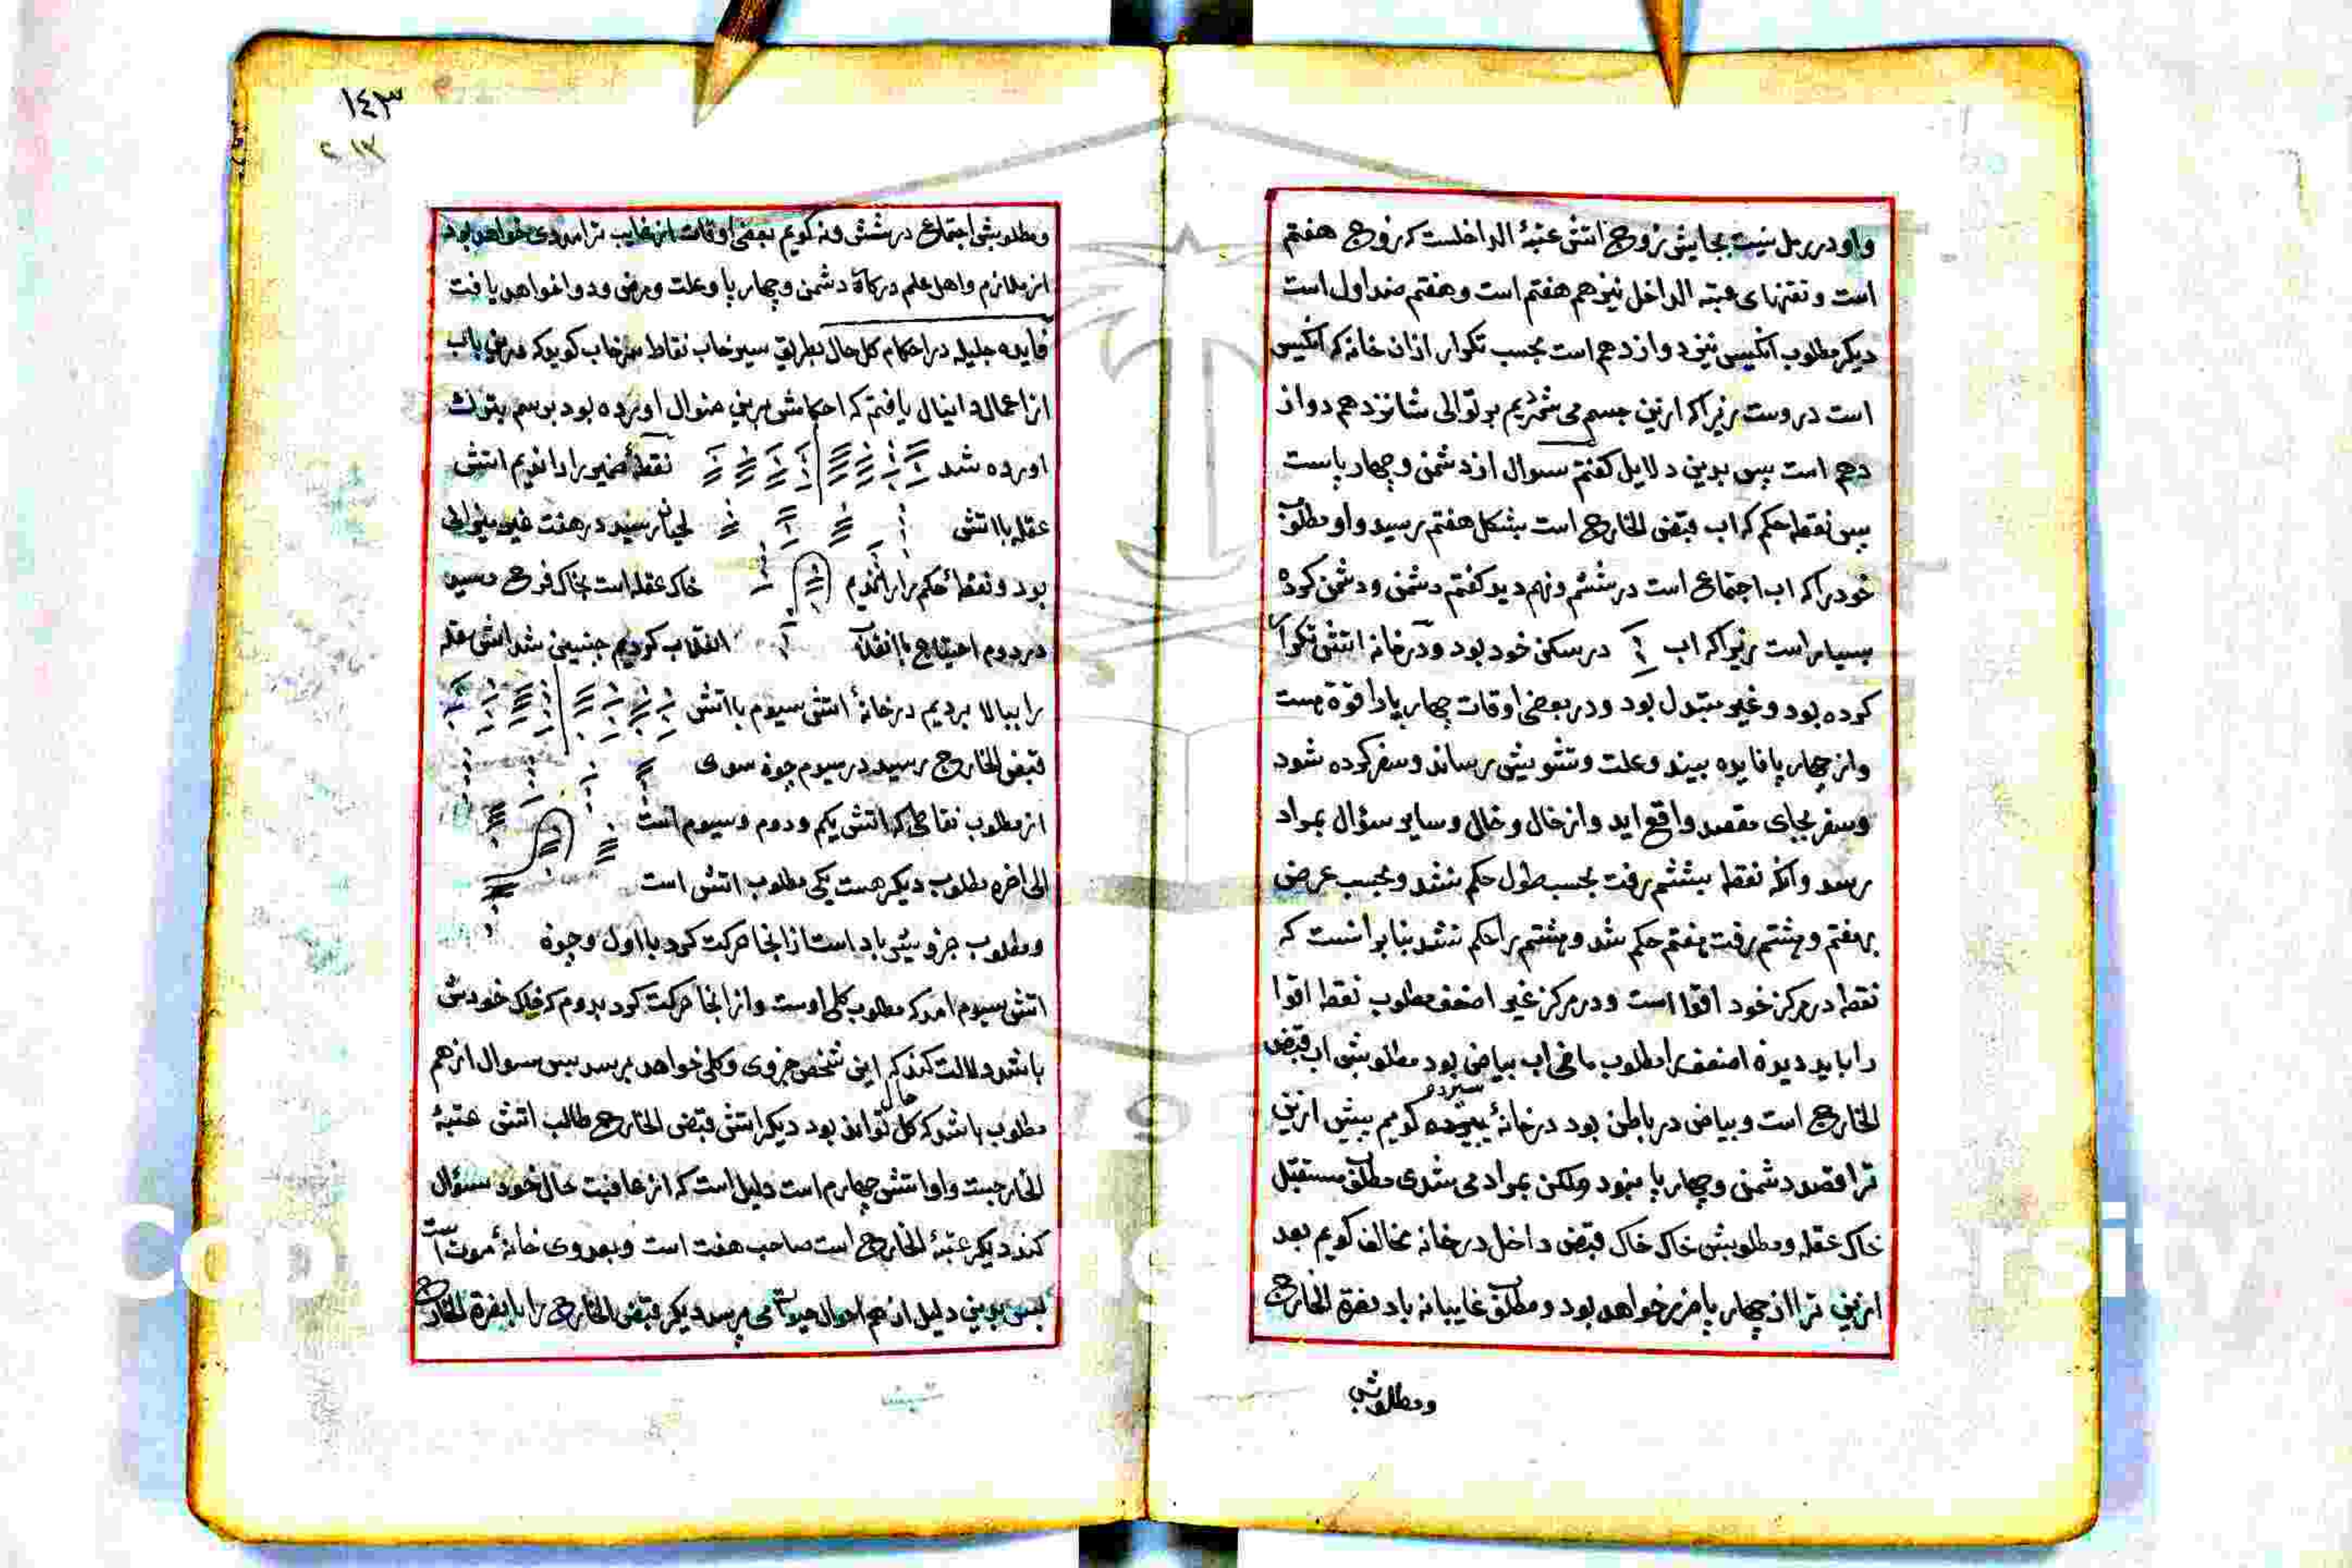 واو در رمل نیست بجایش زوج اتش عتبة الداخلست که زوج هفتم
است و نقتهای عتبه الداخل نیز هم هفتم است و هفتم ضد اول است
دیکر مطلوب انکیس نیز دوازدهم است بحسب تکرار ازان خانه که انکیس
است دروست زیراکه ازین جسم می شمردیم بر توالی شانزدهم دواز
دهم است پس بدین دلایل کفتم سوال از دشمن و چهارپاست
پس نقطه حکم که اب قبض الخارج است بشکل هفتم رسید واو مطلوب
خود را که اب اجتماع است در ششم و نهم دید کفتم دشمن و دشمن کرده
بسیار است زیراکه اب در سکن خود بود و در خانه اتش تکرار
کرده بود و غیر مبتدل بود و در بعضی اوقات چهارپا را قوة هست
واز چهارپا فایده بیند و علت و تشویش رساند و سفر کرده شود
و سفر بجای مقصد واقع اید و از خال و خالی و سایر سؤال بمراد
رسد وانکه نقطه بششم رفت بحسب طول حکم نشد و بحسب عرض
بهفتم و بهشتم رفت هفتم حکم شد و هشتم را حکم نشد بنا برانست که
نقطه در مرکز خود اقوا است و در مرکز غیر اضعف مطلوب نقطه اقوا
را باید دید نه اضعف را مطلوب ماضی اب بیاض بود مطلوبش اب قبض
الخارج است و بیاض در باطن بود در خانهٔ سیزده کویم پیش ازین
ترا قصد دشمن و چهارپا نبود ولکن بمراد می شدی مطلوب مستقبل
خاک عقله و مطلوبش خاک خاک قبض داخل در خانه مخالف کویم بعد
ازین ترا از چهارپا ضرر خواهد بود و مطلوب غایبانه باد نصرة الخارج
ومطلوبش
١٤٣
ومطلوبش اجتماع در شش و نه کویم بعضی اوقات از غایب ترا مددی خواهد بود
از ملازم و اهل علم در کاة دشمن و چهارپا و علت و مرض و دوا خواهد یافت
فایده جلیله در احکام کل حال بطریق سیرخاب نقاط سرخاب کوید که درین باب
از اعمال دانیال یافتم که احکامش برین منوال اورده بود برسم تبرک
اورده شد نقطهٔ ضمیر را راندیم اتش
عقله با اتش لحیان رسید در هفت غیر منوالی
بود و نقطهٔ حکم را راندیم خاک عقله است بخاک فرح رسید
در دوم احتیاج با انقلاب انقلاب کردیم چنین شد اتش عقله
را ببالا بردیم در خانهٔ اتش سیوم با اتش
قبض الخارج رسید در سیوم چون سوی
از مطلوب نقاطی که اتش یکم و دوم و سیوم است
الی اخره مطلوب دیکر هست یکی مطلوب اتش است
ومطلوب جزوی باد است از انجا حرکت کرد با اول و چون
اتش سیوم امد که مطلوب کلی اوست و از انجا حرکت کرد بدوم که فلک خودش
باشد دلالت کند که این شخص جزوی و کلی خواهد پرسد پس سوال از هم
مطلوب باشد که کل حال تواند بود دیکر اتش قبض الخارج طالب اتش عتبهٔ
الخارجست واو اتش چهارم است دلیل است که از عاقبت حال خود سؤال
کند دیکر عتبهٔ الخارج است صاحب هفت است و بعد وی خانهٔ موت است
پس بدین دلیل از هم احوال حیوة می پرسد دیکر قبض الخارج را با نصرة الخارج